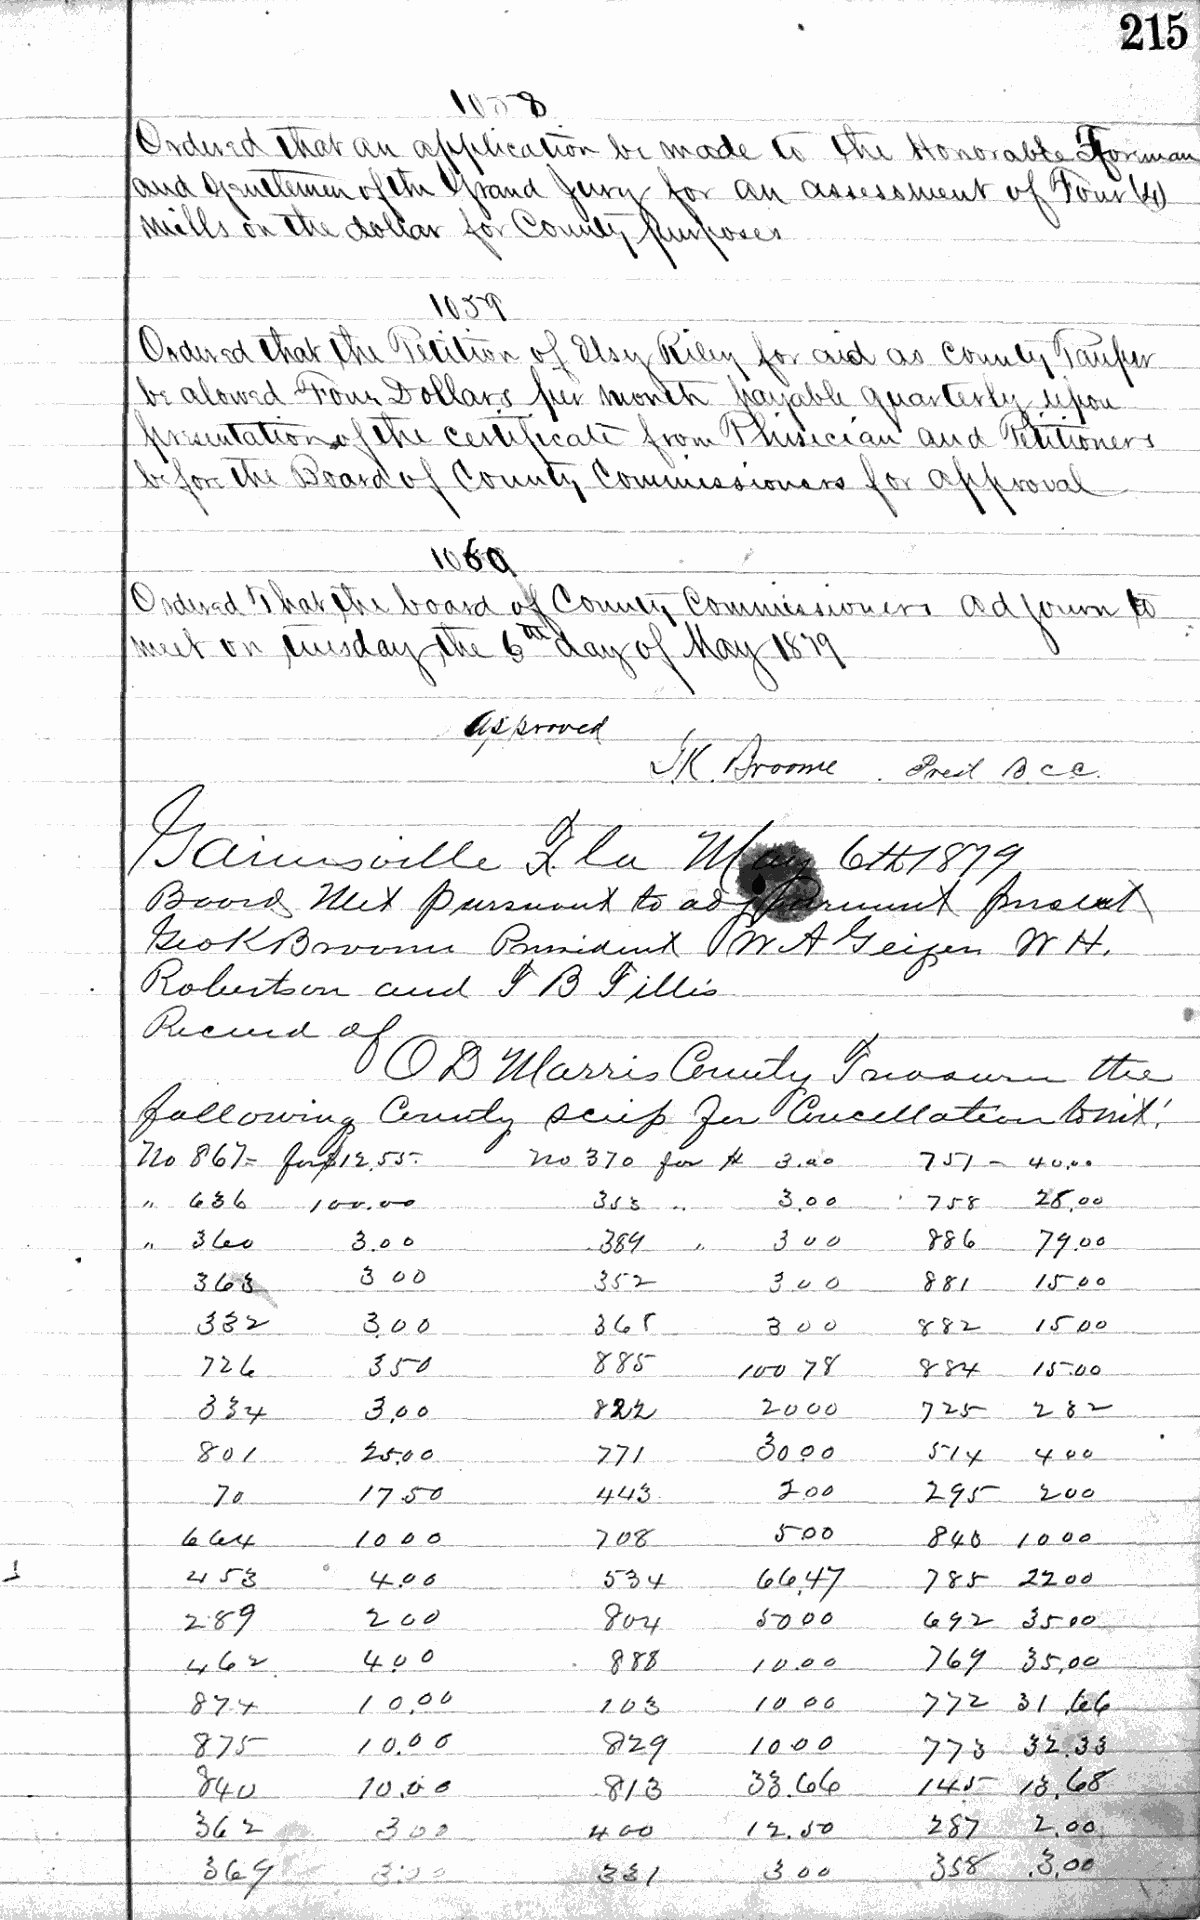 215
1058
Ordered that an application be made to the Honorable Forman
and Gentlemen of the Grand Jury for an assessment of Four (4)
Mills on the dollar for County purposes
1059
Ordered that the Petition of Elsy Riley for aid as County Pauper
be alowed Four Dollars per month payable quarterly upon
presentation of the certificate from Phisician and Petitioners
before the Board of County Commissioners for approval
1060
Ordered that the board of County Commissioners adjourn to
meet on Tuesday the 6th day of May 1879
Approved
Broome Prest B.C.C.
Gainesville Fla May 6th 1879
Board Met pursuant to adjournment present
Geo K Broome President W A Geiger W H.
Robertson and F B Tillis
Record of
O D Marris County Treasurer the
following County scrip for Cancellation towit:
No 867= for $12.55 No 370 for $ 3.00 757 - 40.00
" 636 100.00 353 " 3.00 758 28.00
" 360 3.00 389 " 300 886 79.00
363 300 352 300 881 15.00
332 3.00 365 300 882 15.00
726 350 885 100 78 884 15.00
334 3.00 822 2000 725 282
801 25.00 771 3000 514 400
70 17.50 443 200 295 200
664 1000 708 500 840 1000
453 4.00 534 66.47 785 2200
289 200 804 5000 692 35.00
462 4.00 888 10.00 769 35.00
874 10.00 103 10 00 772 31.66
875 10.00 829 10.00 773 32.33
840 10.00 813 33.66 145 13.68
362 300 400 12.50 287 2.00
369 3.00 331 3 00 358 3.00